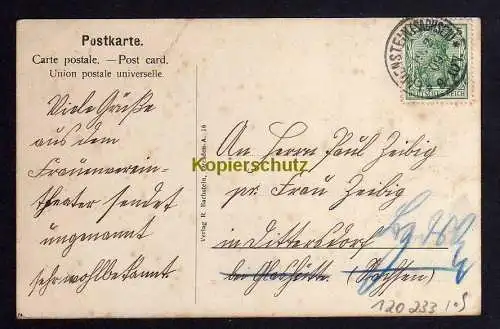 Postkarte.
Carte postale. — Post card.
Union postale universelle.
Viele Grüße
aus dem
Frauenverein-
theater sendet
ungenannt
sehr wohlbekannt
Verlag R. Bachstein, Dresden-A. 16
Kopierschutz
DEUTSCHES REICH
An Herrn Paul Zeibig
pr. Frau Zeibig
in Dittersdorf
bei Glashütte. (Sachsen)
120 233